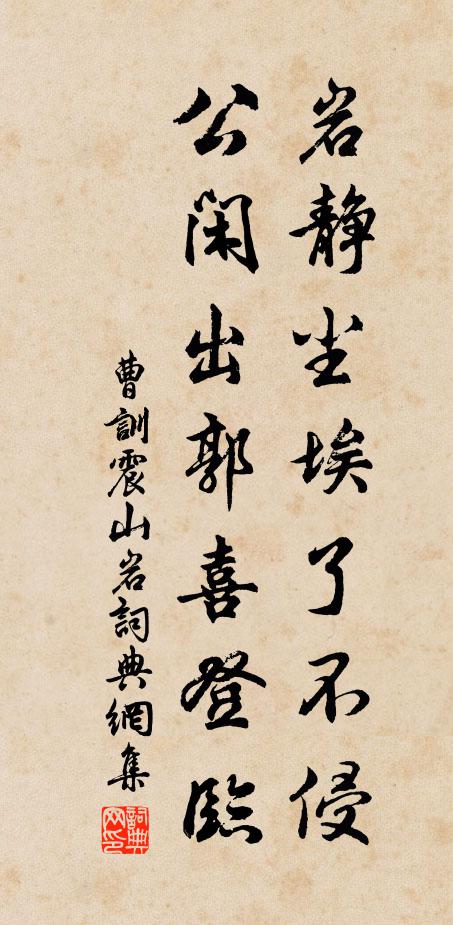 岩静尘埃了不侵
公闲出郭喜登临
曹訓震山岩詞典網集
詞典网印